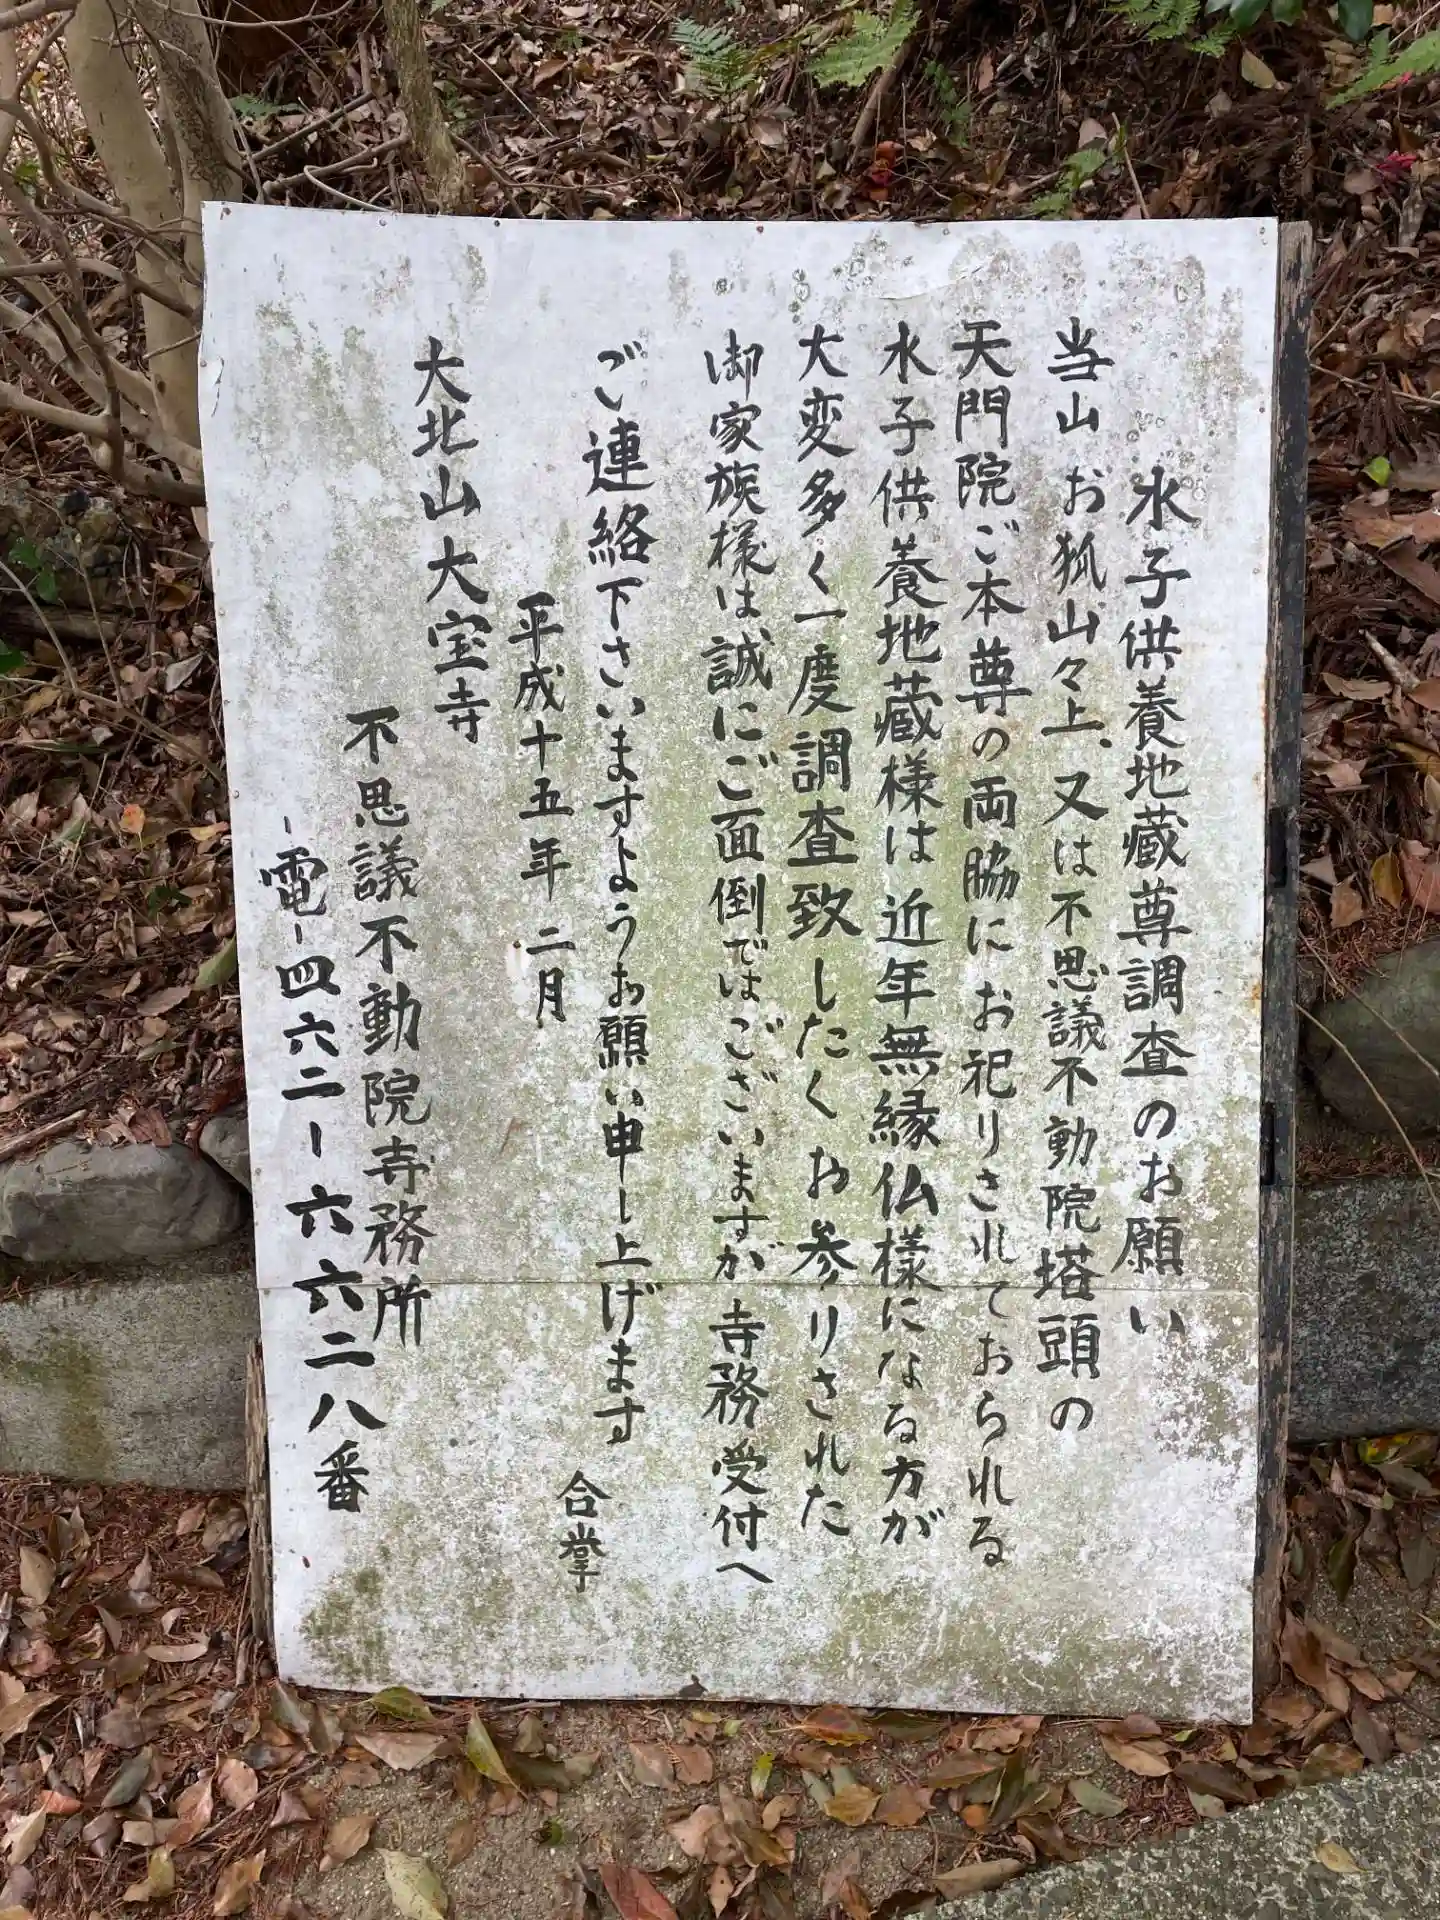 水子供養地蔵尊調査のお願い
当山お狐山々上、又は不思議不動院塔頭の
天門院ご本尊の両脇にお祀りされておられる
水子供養地蔵様は近年無縁仏様になる方が
大変多く一度調査致したくお参りされた
御家族様は誠にご面倒ではございますが寺務受付へ
ご連絡下さいますようお願い申し上げます
合掌
平成十五年二月
大北山大宝寺
不思議不動院寺務所
-電-四六二-六六二八番